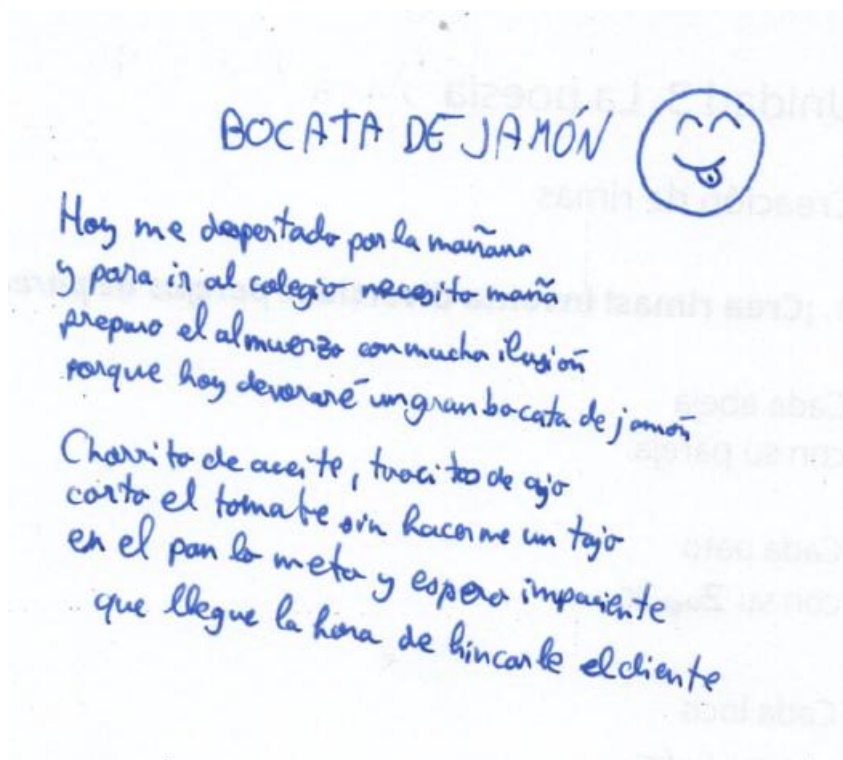 BOCATA DE JAMÓN
Hoy me despertado por la mañana
y para ir al colegio necesito maña
preparo el almuerzo con mucha ilusión
porque hoy devoraré un gran bocata de jamón
Chorrito de aceite, trocitos de ajo
corto el tomate sin hacerme un tajo
en el pan lo meto y espero impaciente
que llegue la hora de hincarle el diente